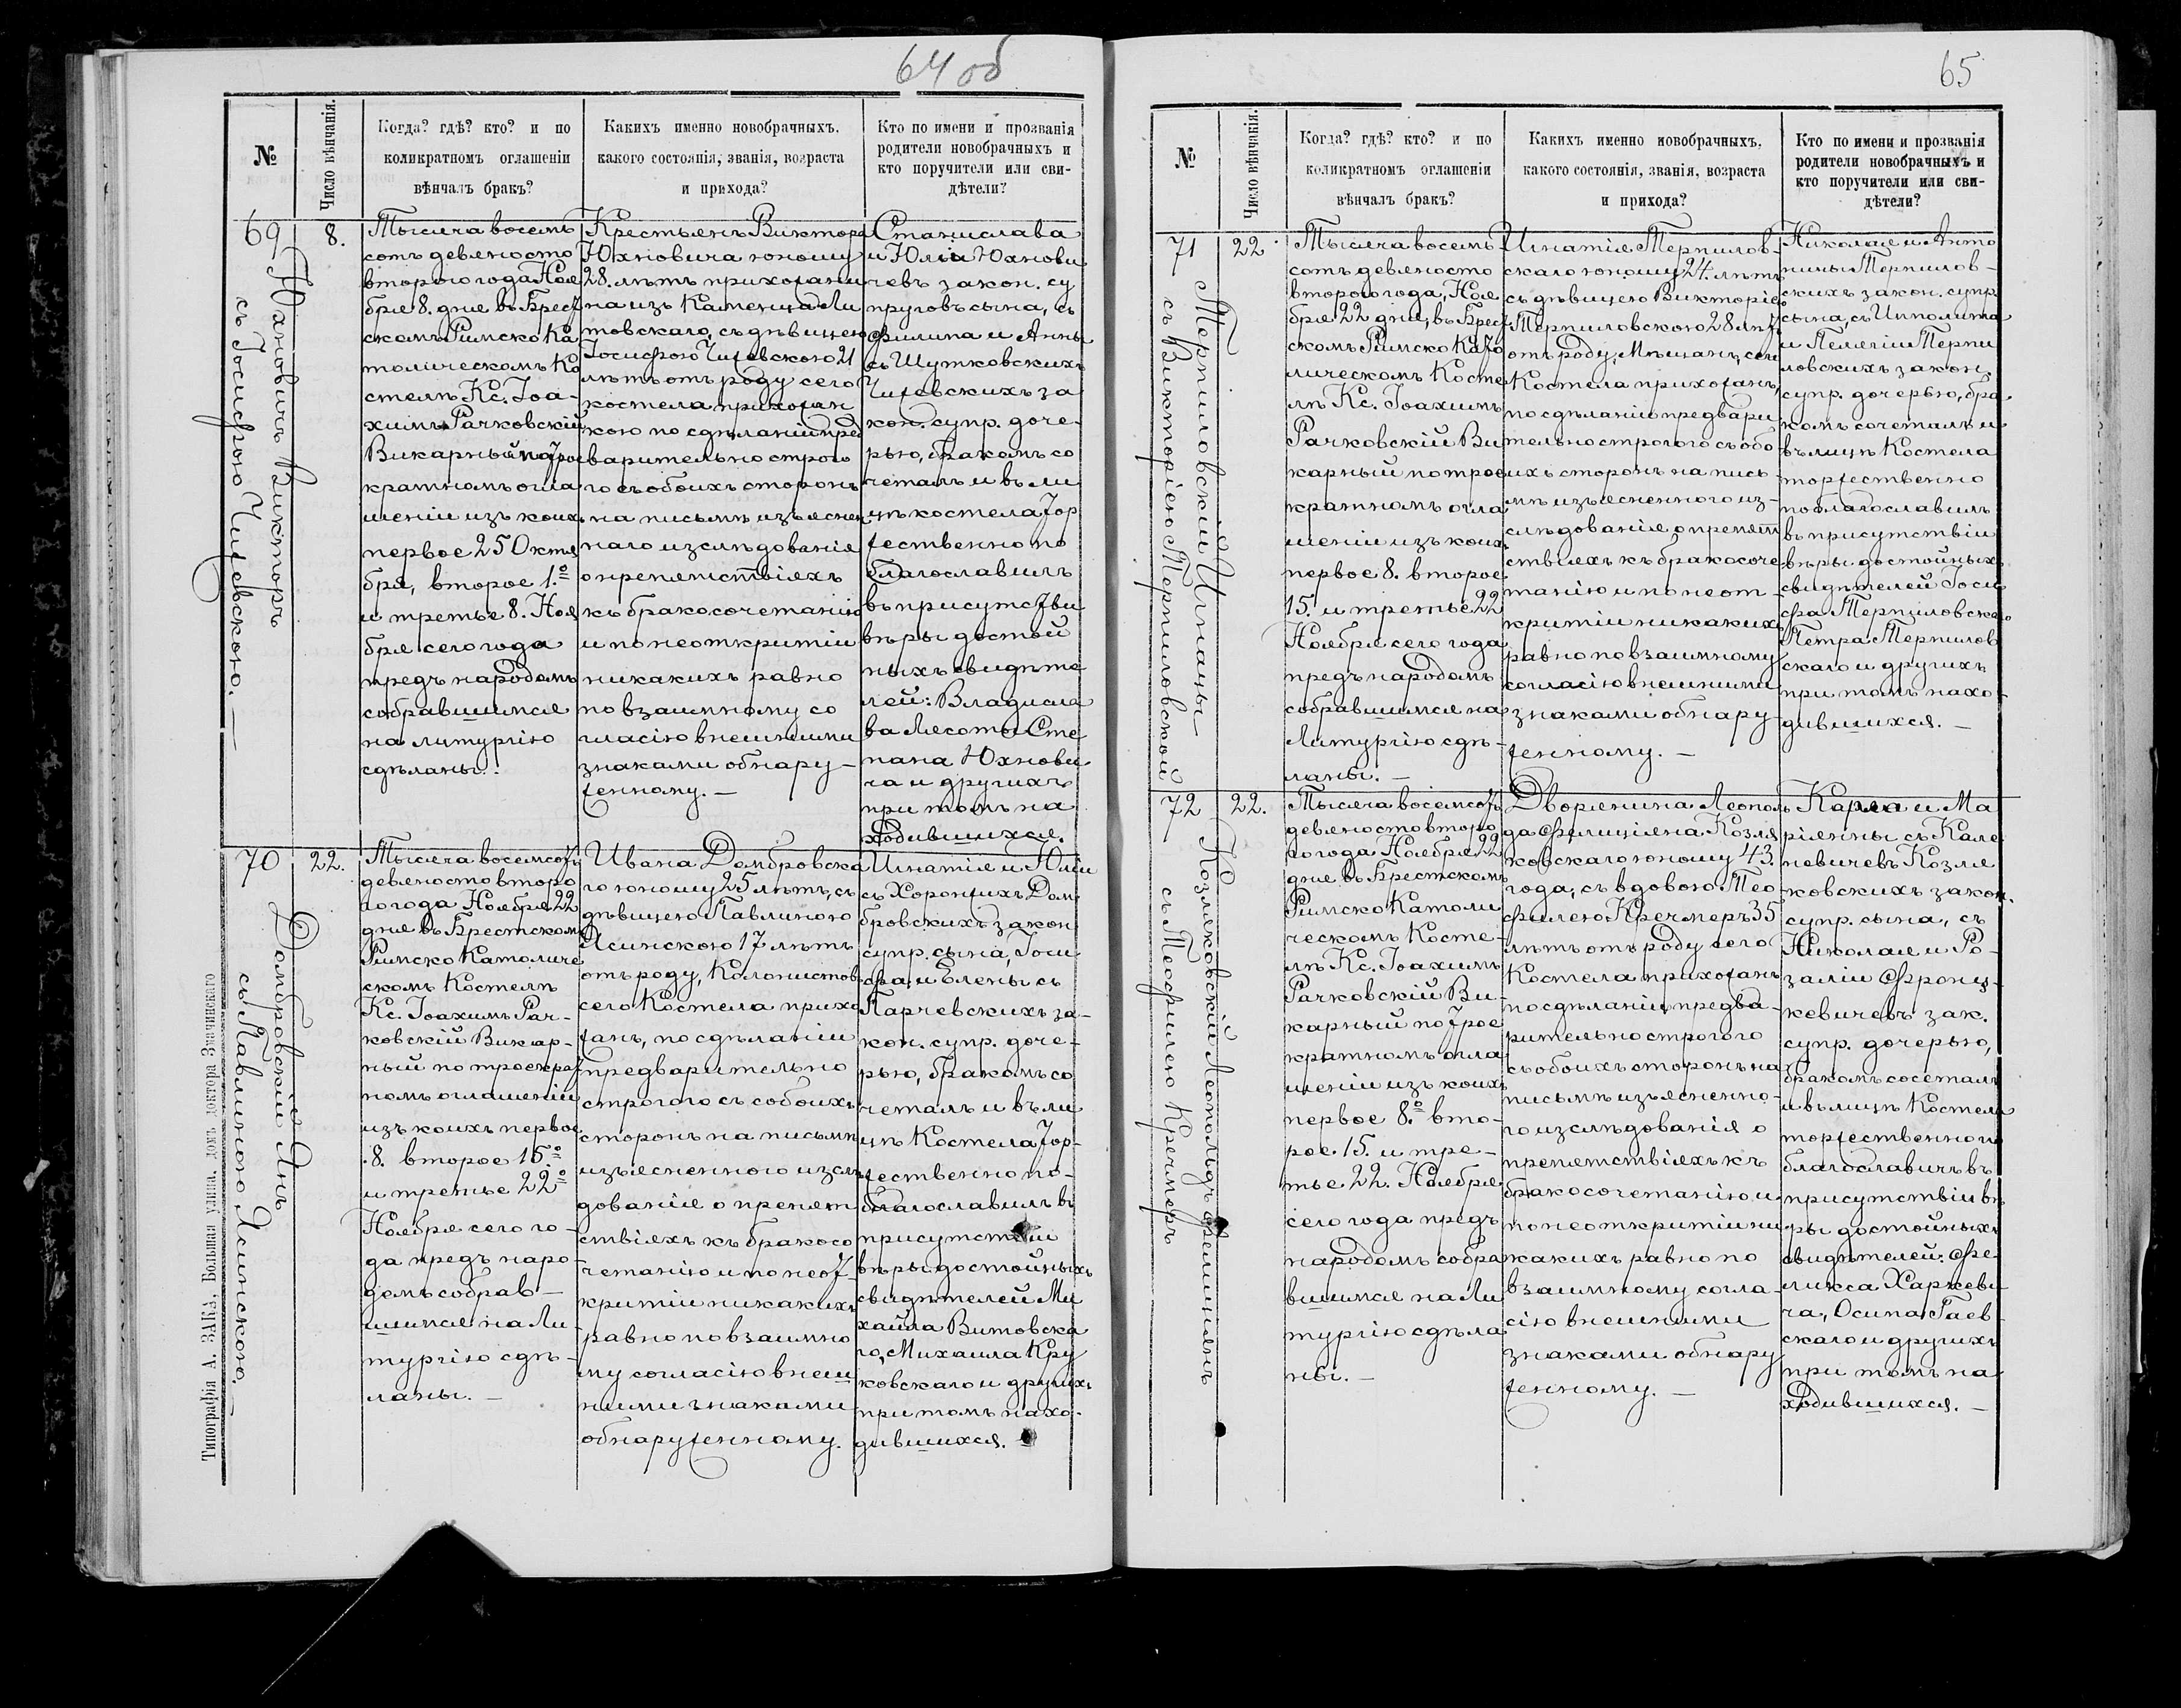 64 об
№
Число вѣнчанія.
Когда? гдѣ? кто? и по
коликратномъ оглашеніи
вѣнчалъ бракъ?
Какихъ именно новобрачныхъ,
какого состоянія, званія, возраста
и прихода?
Кто по имени и прозванія
родители новобрачныхъ и
кто поручители или сви-
дѣтели?
69
Юхновичъ Викторъ
съ Іосифою Чижевскою. —
8.
Тысяча восемъ
сотъ девяносто
второго года Ноя
бря 8. дня въ Брест
скомъ Римско Ка
толическомъ Ко
стелѣ Кс. Іоа-
химъ Рачковскій
Викарный по трое
кратномъ огла
шеніи изъ коихъ
первое 25 Октя
бря, второе 1.º
и третье 8. Ноя
бря сего года
предъ народомъ
собравшимся
на литургію
сдѣланы.
Крестьянъ Виктора
Юхновича юношу
28. лѣтъ прихожани
на изъ Каменца Ли
товскаго, съ дѣвицею
Іосифою Чижевскою 21
лѣтъ отъ роду сего
костела прихожан
кою по сдѣланіи пред
варительно строго
го съ обоихъ сторонъ
на письмѣ изъяснен
наго изслѣдованія
о препятствіяхъ
къ бракосочетанію
и по неоткритіи
никакихъ равно
по взаимному со
гласію внешними
знаками обнару-
женному. —
Станислава
и Юліи Юхнови
чевъ закон. су
пруговъ сына, съ
Филипа и Анны
съ Шутковскихъ
Чижевскихъ за
кон. супр. доче-
рью, бракомъ со
четалъ и въ ли
цѣ костела тор
жественно по
благославилъ
въ присутстви
вѣры достой
ныхъ свидѣте
лей: Владисла
ва Лясоты Сте
пана Юхнови
ча и другихъ
при томъ на
ходившихся.
70
Домбровскій Янъ
съ Павлиною Ясинскою. —
22.
Тысяча восемсотъ
девяносто второ
го года Ноября 22
дня въ Брестскомъ
Римско Католиче
скомъ Костелѣ
Кс. Іоахимъ Рач-
ковскій Викар-
ный по троекрат
номъ оглашеніи
изъ коихъ первое
8. второе 15º
и третье 22º
Ноября сего го-
да предъ наро-
домъ собрав-
шимся на Ли-
тургію сдѣ-
ланы. —
Ивана Домбровска
го юношу 25 лѣтъ, съ
дѣвицею Павлиною
Ясинскою 17 лѣтъ
отъ роду, Колонистовъ
сего Костела прихо
жанъ, по сдѣланіи
предварительно
строгого съ собоихъ
сторонъ на письмѣ
изъясненного изслѣ
дованія о препят
ствіяхъ къ бракосо
четанію и по неот-
критіи никакихъ
равно по взаимно
му согласію внеш
ними знаками
обнаруженному.
Игнатія и Юліи
съ Хоронжихъ Дом
бровскихъ закон
супр. сына, Іоси
фа и Елены съ
Парчевскихъ за-
кон. супр. доче-
рью, бракомъ со
четалъ и въ ли
цѣ Костела тор-
жественно по-
благославилъ въ
присутствіи
вѣры достойныхъ
свидѣтелей Ми
хаила Витовска
го, Михаила Кру
ковскаго и другихъ
при томъ нахо-
дившихся.
Типографія А. ЗАКА, Большая улица, домъ доктора Значинскаго
65
№
Число вѣнчанія.
Когда? гдѣ? кто? и по
коликратномъ оглашеніи
вѣнчалъ бракъ?
Какихъ именно новобрачныхъ,
какого состоянія, званія, возраста
и прихода?
Кто по имени и прозванія
родители новобрачныхъ и
кто поручители или сви-
дѣтели?
71
Терпиловскій Игнацы —
съ Викторіею Терпиловской
22.
Тысяча восемъ
сотъ девяносто
второго года, Ноя
бря 22 дня, въ Брест
скомъ Римско Като
лическомъ Косте
лѣ Кс. Іоахимъ
Рачковскій Ви
карный по трое
кратномъ огла
шеніи изъ коихъ
первое 8. второе
15. и третье 22
Ноября сего года
предъ народомъ
собравшимся на
Литургію сдѣ-
ланы. —
Игнатія Терпилов-
скаго юношу 24. лѣтъ
съ дѣвицею Викторіею
Терпиловскою 28 лѣт
отъ роду, Мѣщанъ, сего
Костела прихожанъ,
по сдѣланію предвари
тельно строгого съ обо
ихъ сторонъ на пись
мѣ изъясненного из-
слѣдованія о препят
ствіяхъ къ бракосоче
танію и по неот-
критіи никакихъ
равно по взаимному
согласію внешними
знаками обнару-
женному. —
Николая и Анто
нины Терпилов-
скихъ закон. супр.
сына, съ Ипполита
и Пелягіи Терпи
ловскихъ закон.
супр. дочерью, бра
комъ сочеталъ и
въ лицѣ Костела
торжественно
поблагославилъ
въ присутствіи
вѣры достойныхъ
свидѣтелей Іоси
фа Терпиловскаго
Петра Терпилов
скаго и другихъ
при томъ нахо-
дившихся. —
72
Козляковскій Леопольдъ Фелиціянъ
съ Теофилею Кречмеръ
22.
Тысяча восемсотъ
девяносто второ
го года Ноября 22
дня въ Брестскомъ
Римско Католи
ческомъ Косте-
лѣ Кс. Іоахимъ
Рачковскій Ви-
карный по трое
кратномъ огла
шеніи изъ коихъ
первое 8.º вто-
рое 15. и тре-
тье 22. Ноября
сего года предъ
народомъ собра
вшимся на Ли
тургію сдѣла
ны. —
Дворянина Леополь
да Фелиціяна Козля
ковскаго юношу 43.
года, съ вдовою Тео
филею Кречмеръ 35
лѣтъ отъ роду сего
Костела прихожанъ
по сдѣланіи предва-
рительно строгого
съ обоихъ сторонъ на
письмѣ изъясненно-
го изслѣдованія о
препятствіяхъ къ
бракосочетанію и
по неоткритіи ни
какихъ равно по
взаимному согла-
сію внешними
знаками обнару
женному. —
Карла и Ма
ріянны съ Кале
новичевъ Козля
ковскихъ закон.
супр. сына, съ
Николая и Ро-
заліи Фронц-
кевичевъ зак.
супр. дочерью,
бракомъ сосеталъ
и въ лицѣ Костела
торжественно по
благославичъ въ
присутствіи вѣ
ры достойныхъ
свидѣтелей: Фе-
ликса Харкеви-
ча, Осипа Гаев-
скаго и другихъ
при томъ на
ходившихся. —